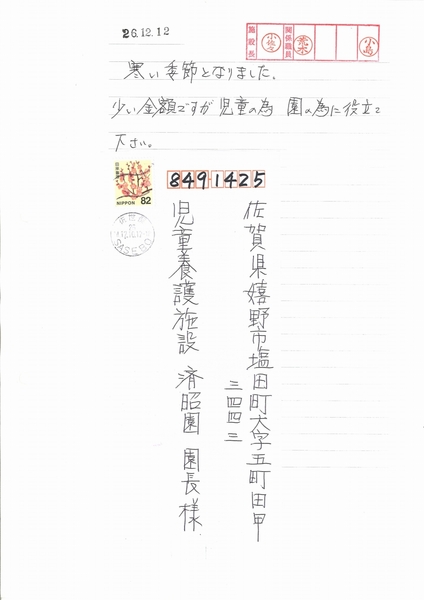 26.12.12
施設長
小佐々
関係職員
荒木
小島
寒い季節となりました。
少い金額ですが児童の為 園の為に役立て
下さい。
NIPPON 82
8491425
SASEBO
佐賀県嬉野市塩田町大字五町田甲
三四四三
児童養護施設 済昭園 園長様